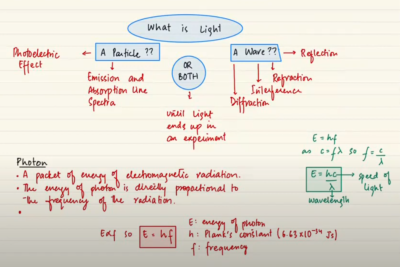 What is Light
Photoelectric Effect
A Particle ??
A Wave ??
Reflection
OR
BOTH
Emission and
Absorption Line
Spectra
Refraction
Interference
Diffraction
until light
ends up in
an experiment
E = hf
as c = fλ so f = c/λ
E = hc/λ
speed of
light
wavelength
Photon
• A packet of energy of electromagnetic radiation.
• The energy of photon is directly proportional to
the frequency of the radiation.
E∝f so E = hf
E: energy of photon
h: Plank's constant (6.63×10⁻³⁴ Js)
f: frequency